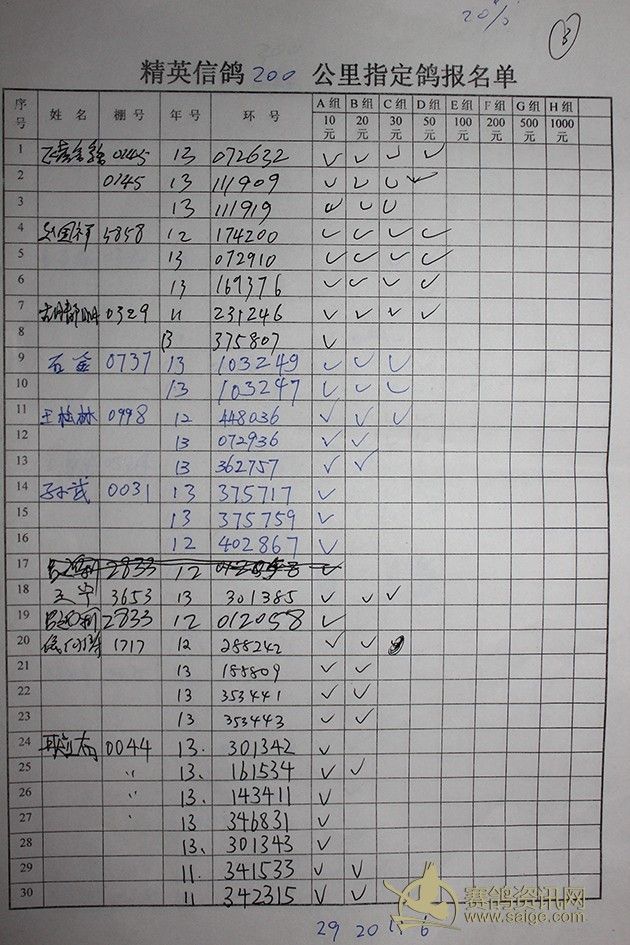 20%
3
精英信鸽 200 公里指定鸽报名单
序号 姓名 棚号 年号 环号 A组 10元 B组 20元 C组 30元 D组 50元 E组 100元 F组 200元 G组 500元 H组 1000元
1 0245 13 072632 ✓ ✓ ✓ ✓
2 0145 13 111909 ✓ ✓ ✓ ✓
3 13 111919 ✓ ✓ ✓
4 5858 12 174200 ✓ ✓ ✓ ✓
5 13 072910 ✓ ✓ ✓ ✓
6 13 169376 ✓ ✓ ✓ ✓
7 0329 11 231246 ✓ ✓ ✓ ✓
8 13 375807 ✓
9 石金 0737 13 103249 ✓ ✓ ✓
10 13 103247 ✓ ✓ ✓
11 王松林 0998 12 448036 ✓ ✓ ✓
12 13 072936 ✓ ✓
13 13 362757 ✓ ✓
14 孙武 0031 13 375717 ✓
15 13 375759 ✓
16 12 402867 ✓
17 2833 12 ✓
18 3653 13 301385 ✓ ✓ ✓
19 2833 12 012058 ✓
20 1717 12 288242 ✓ ✓
21 13 185809 ✓ ✓
22 13 353441 ✓ ✓
23 13 353443 ✓ ✓
24 0044 13. 301342 ✓
25 〃 13. 161534 ✓ ✓
26 〃 13. 143411 ✓
27 13 346831 ✓
28 13. 301343 ✓
29 11. 341533 ✓ ✓
30 11 342315 ✓ ✓ ✓
29 20 11 6
赛鸽资讯网
www.saige.com